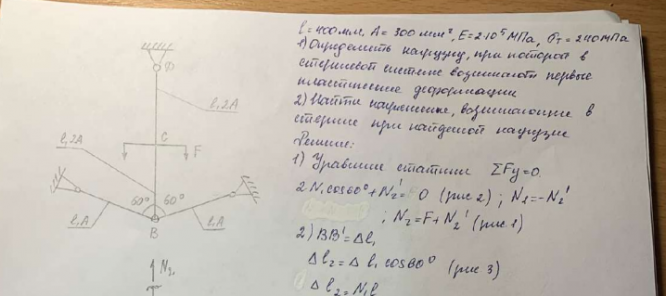 l = 400мм. A = 300 мм², E=2·10⁵ МПа, σт = 240МПа
1) Определить нагрузку, при которой в
стержневой системе возникают первые
пластические деформации
2) Найти напряжение, возникающие в
стержне при найденой нагрузке
Решение:
1) Уравнение статики ΣFy=0.
2N₁cos60°+N₂'=0 (рис 2); N₁=-N₂'
; N₂=F+N₂' (рис 1)
2) BB'=Δl₁
Δl₂=Δl₁cos60° (рис 3)
Δl₂=N₁l
D
l, 2A
C
F
l, 2A
60° 60°
l, A
l, A
B
N₂